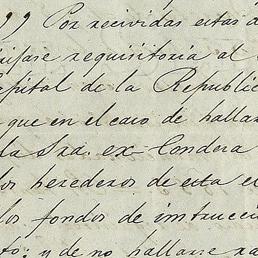 99 Por recividas estas d
quisase requisitoria al
apital de la Republic
que en el caso de hallar
la Sra. ex-Condesa
los herederos de esta e
los fondos de instrucci
tó; y de no hallarse ra